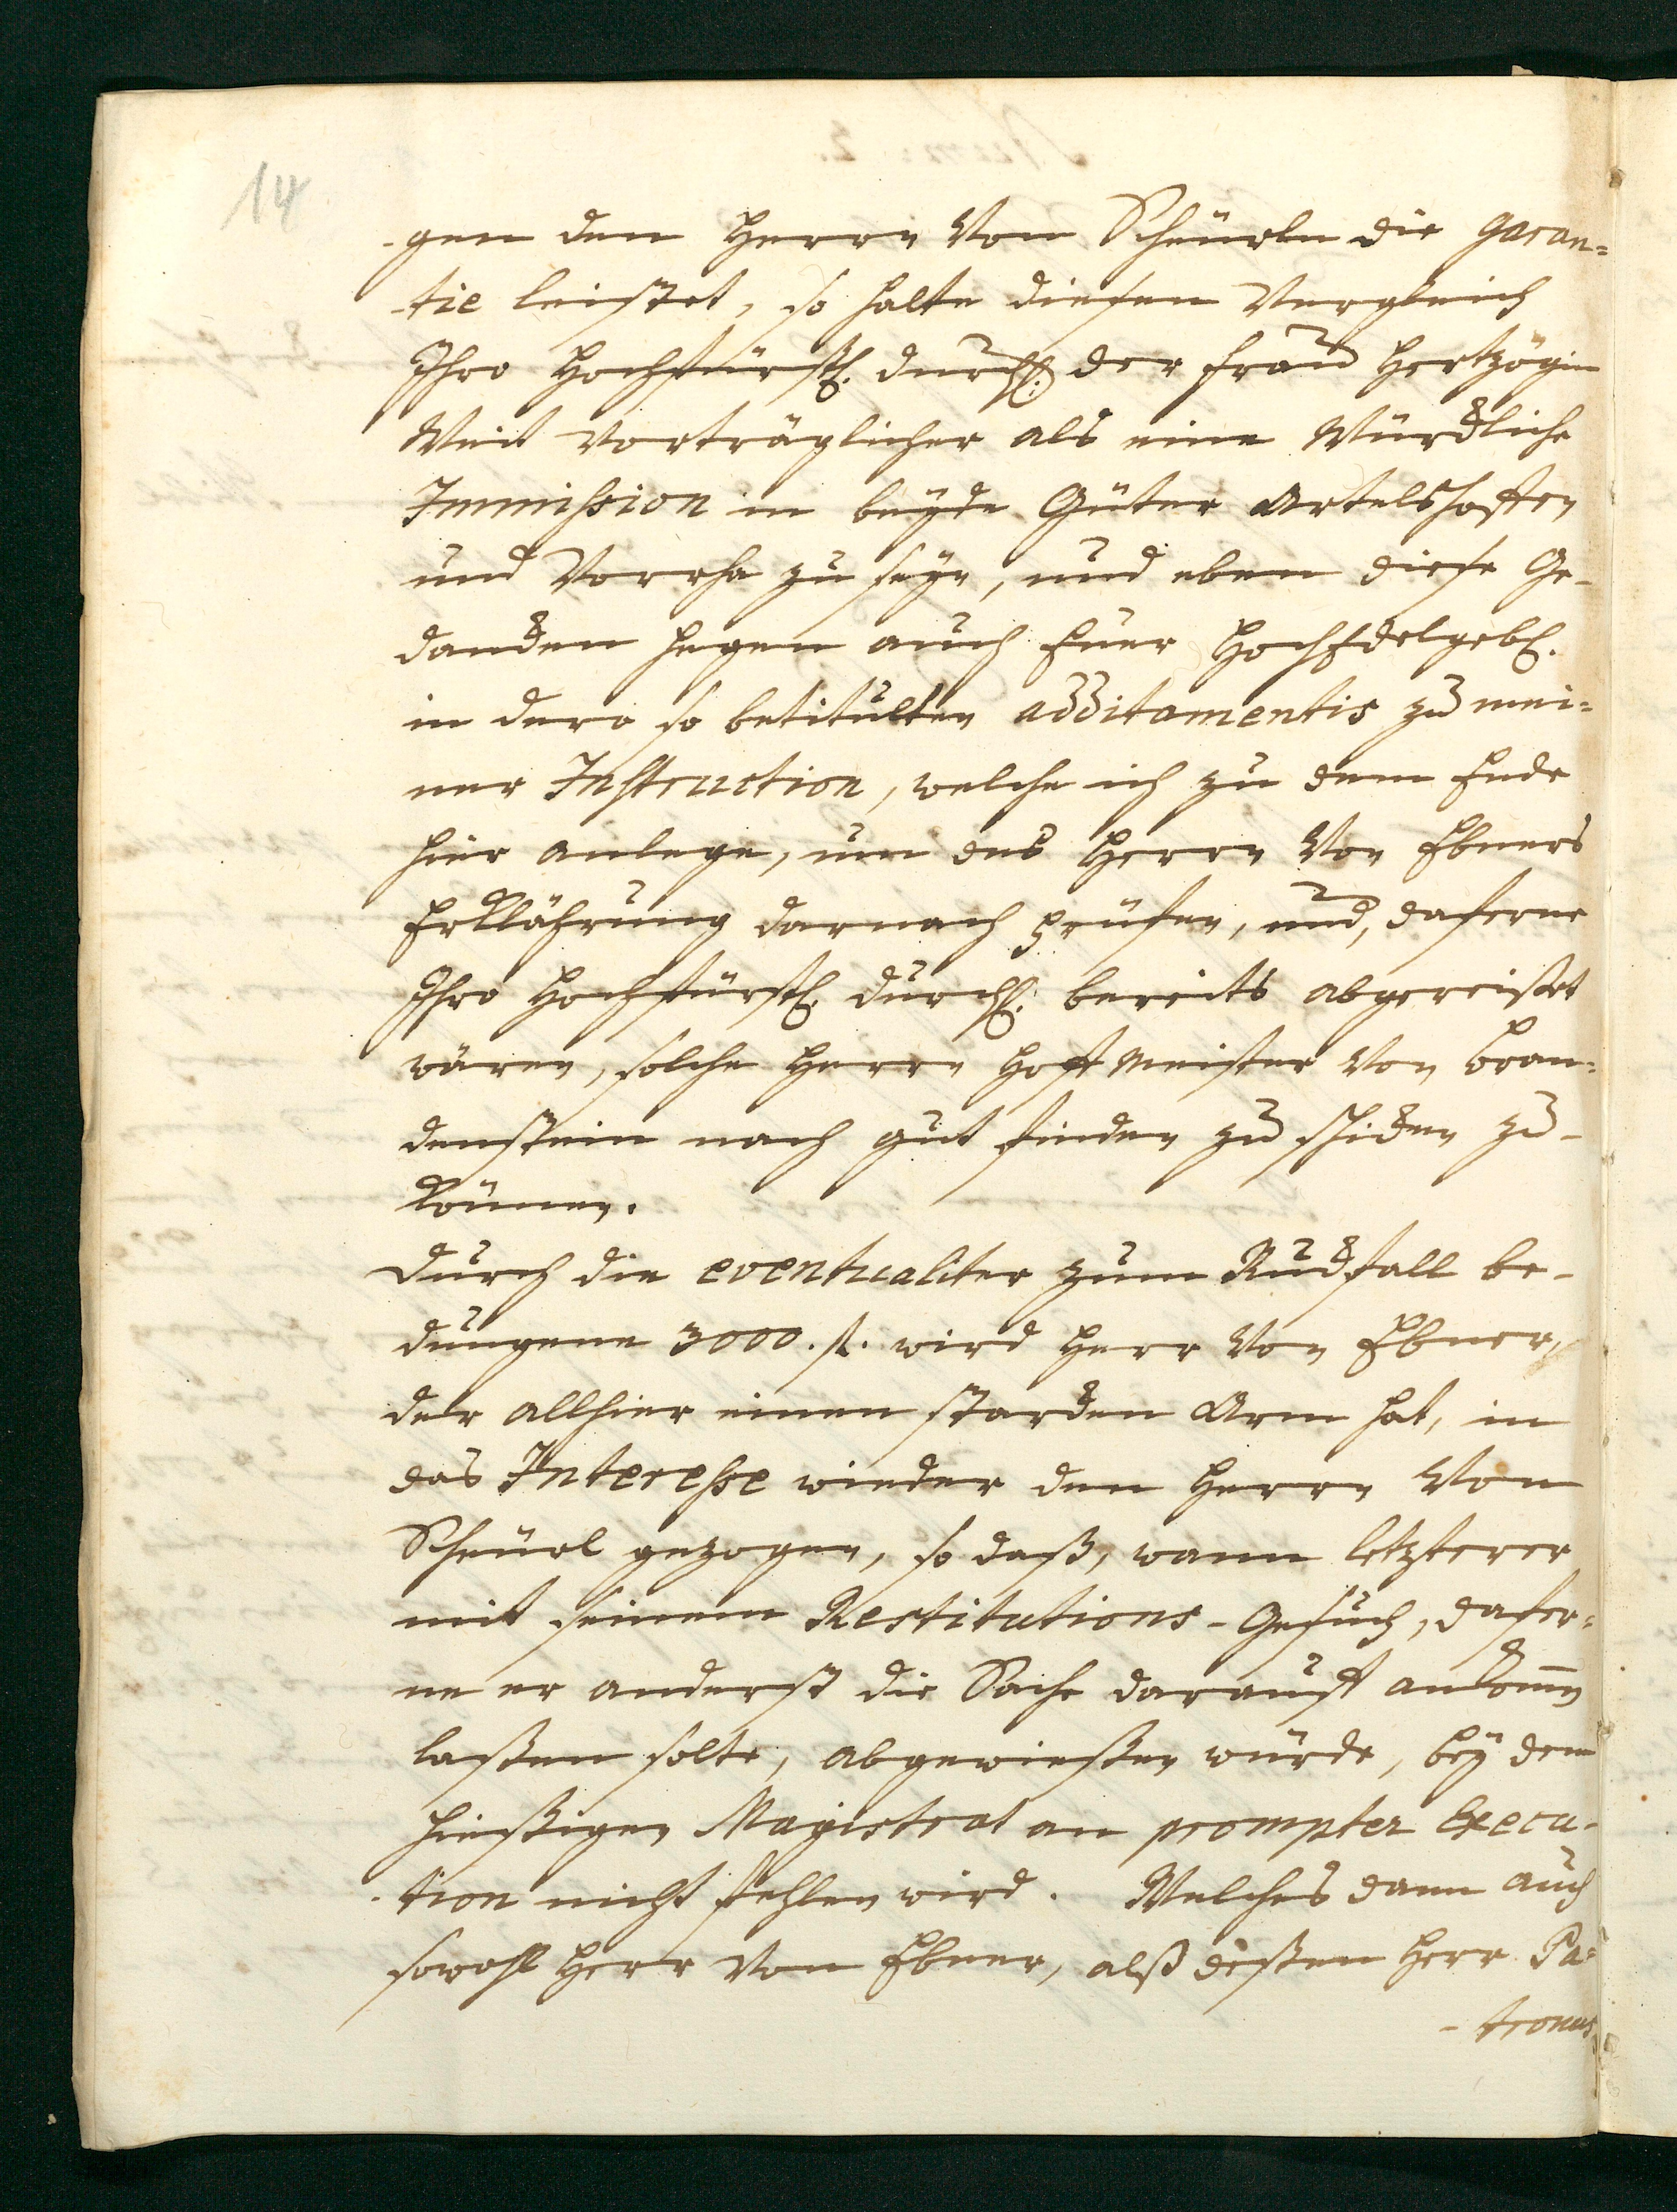 14
-gen den Herrn Von Scheürln die garan=
-tie leistet, so halte diesen Vergleich
Ihro Hochfürstl. Durchl. der Frau Hertzogin
Weit vorträglicher als eine Würckliche
Immission in beyde Güter Artelshoffen
und Vorrha zu seyn, und eben diese Ge-
dancken hegen auch Euer HochEdelgebl.
in dero so betitulten additamentis zu mei=
ner Instruction, welche ich zu dem Ende
hier anlege, um des Herrn Von Ebners
Erklährung darnach prüfen, und, daferne
Ihro Hochfürstl. Durchl. bereits abgereißet
wären, solche Herrn Hoffmeister Von Bran=
denstein nach gut finden zu schicken zu-
können.
Durch die eventualiter zum Ruckfall be-
dungene 3000. fl. wird Herr Von Ebner,
der allhier einen starcken Arm hat, in
das Interesse wieder den Herrn Von
Scheürl gezogen, so daß, wann letzterer
mit seinem Restitutions-Gesuch, dafer=
ne er anderst die Sache darauff ankom̅en
laßen solte, abgewießen würde, bey dem
hießigen Magistrat an prompter Execu-
-tion nicht fehlen wird. Welches dann auch
sowohl Herr Von Ebner, alß deßen Herr Pa=
-tronus